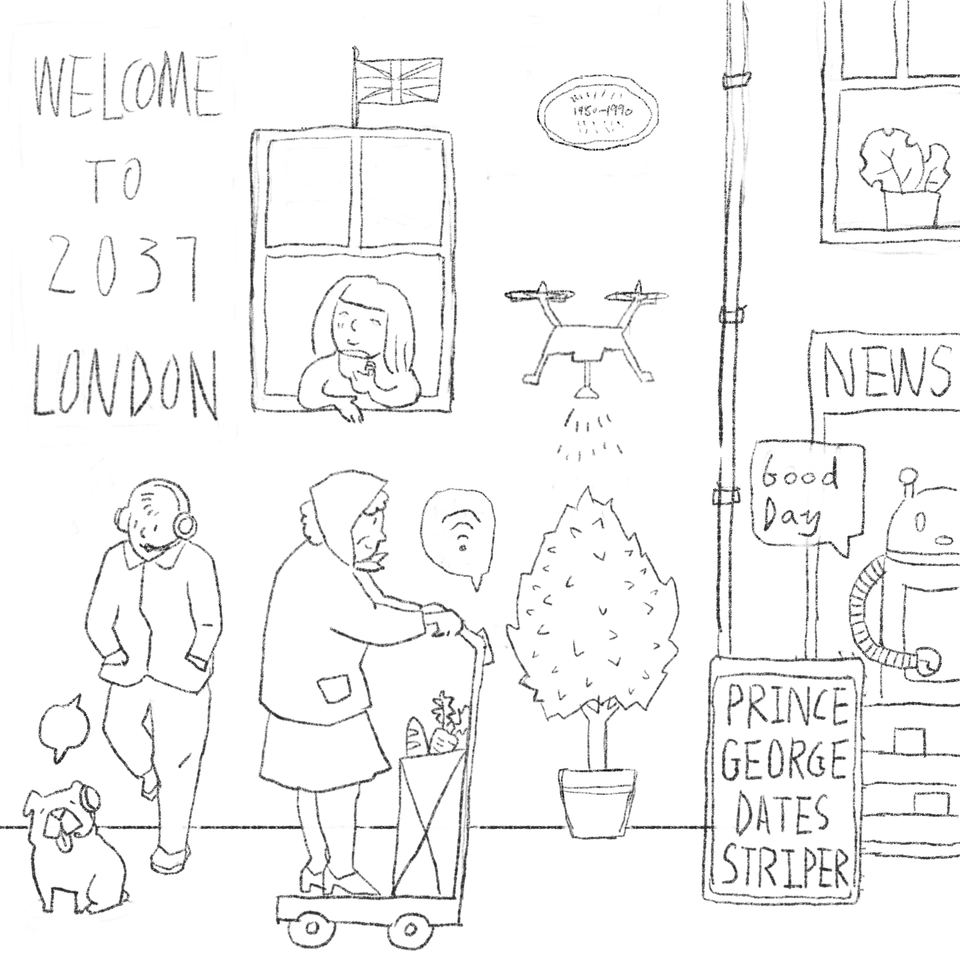 WELCOME
TO
2037
LONDON
1950-1990
NEWS
Good
Day
PRINCE
GEORGE
DATES
STRIPER